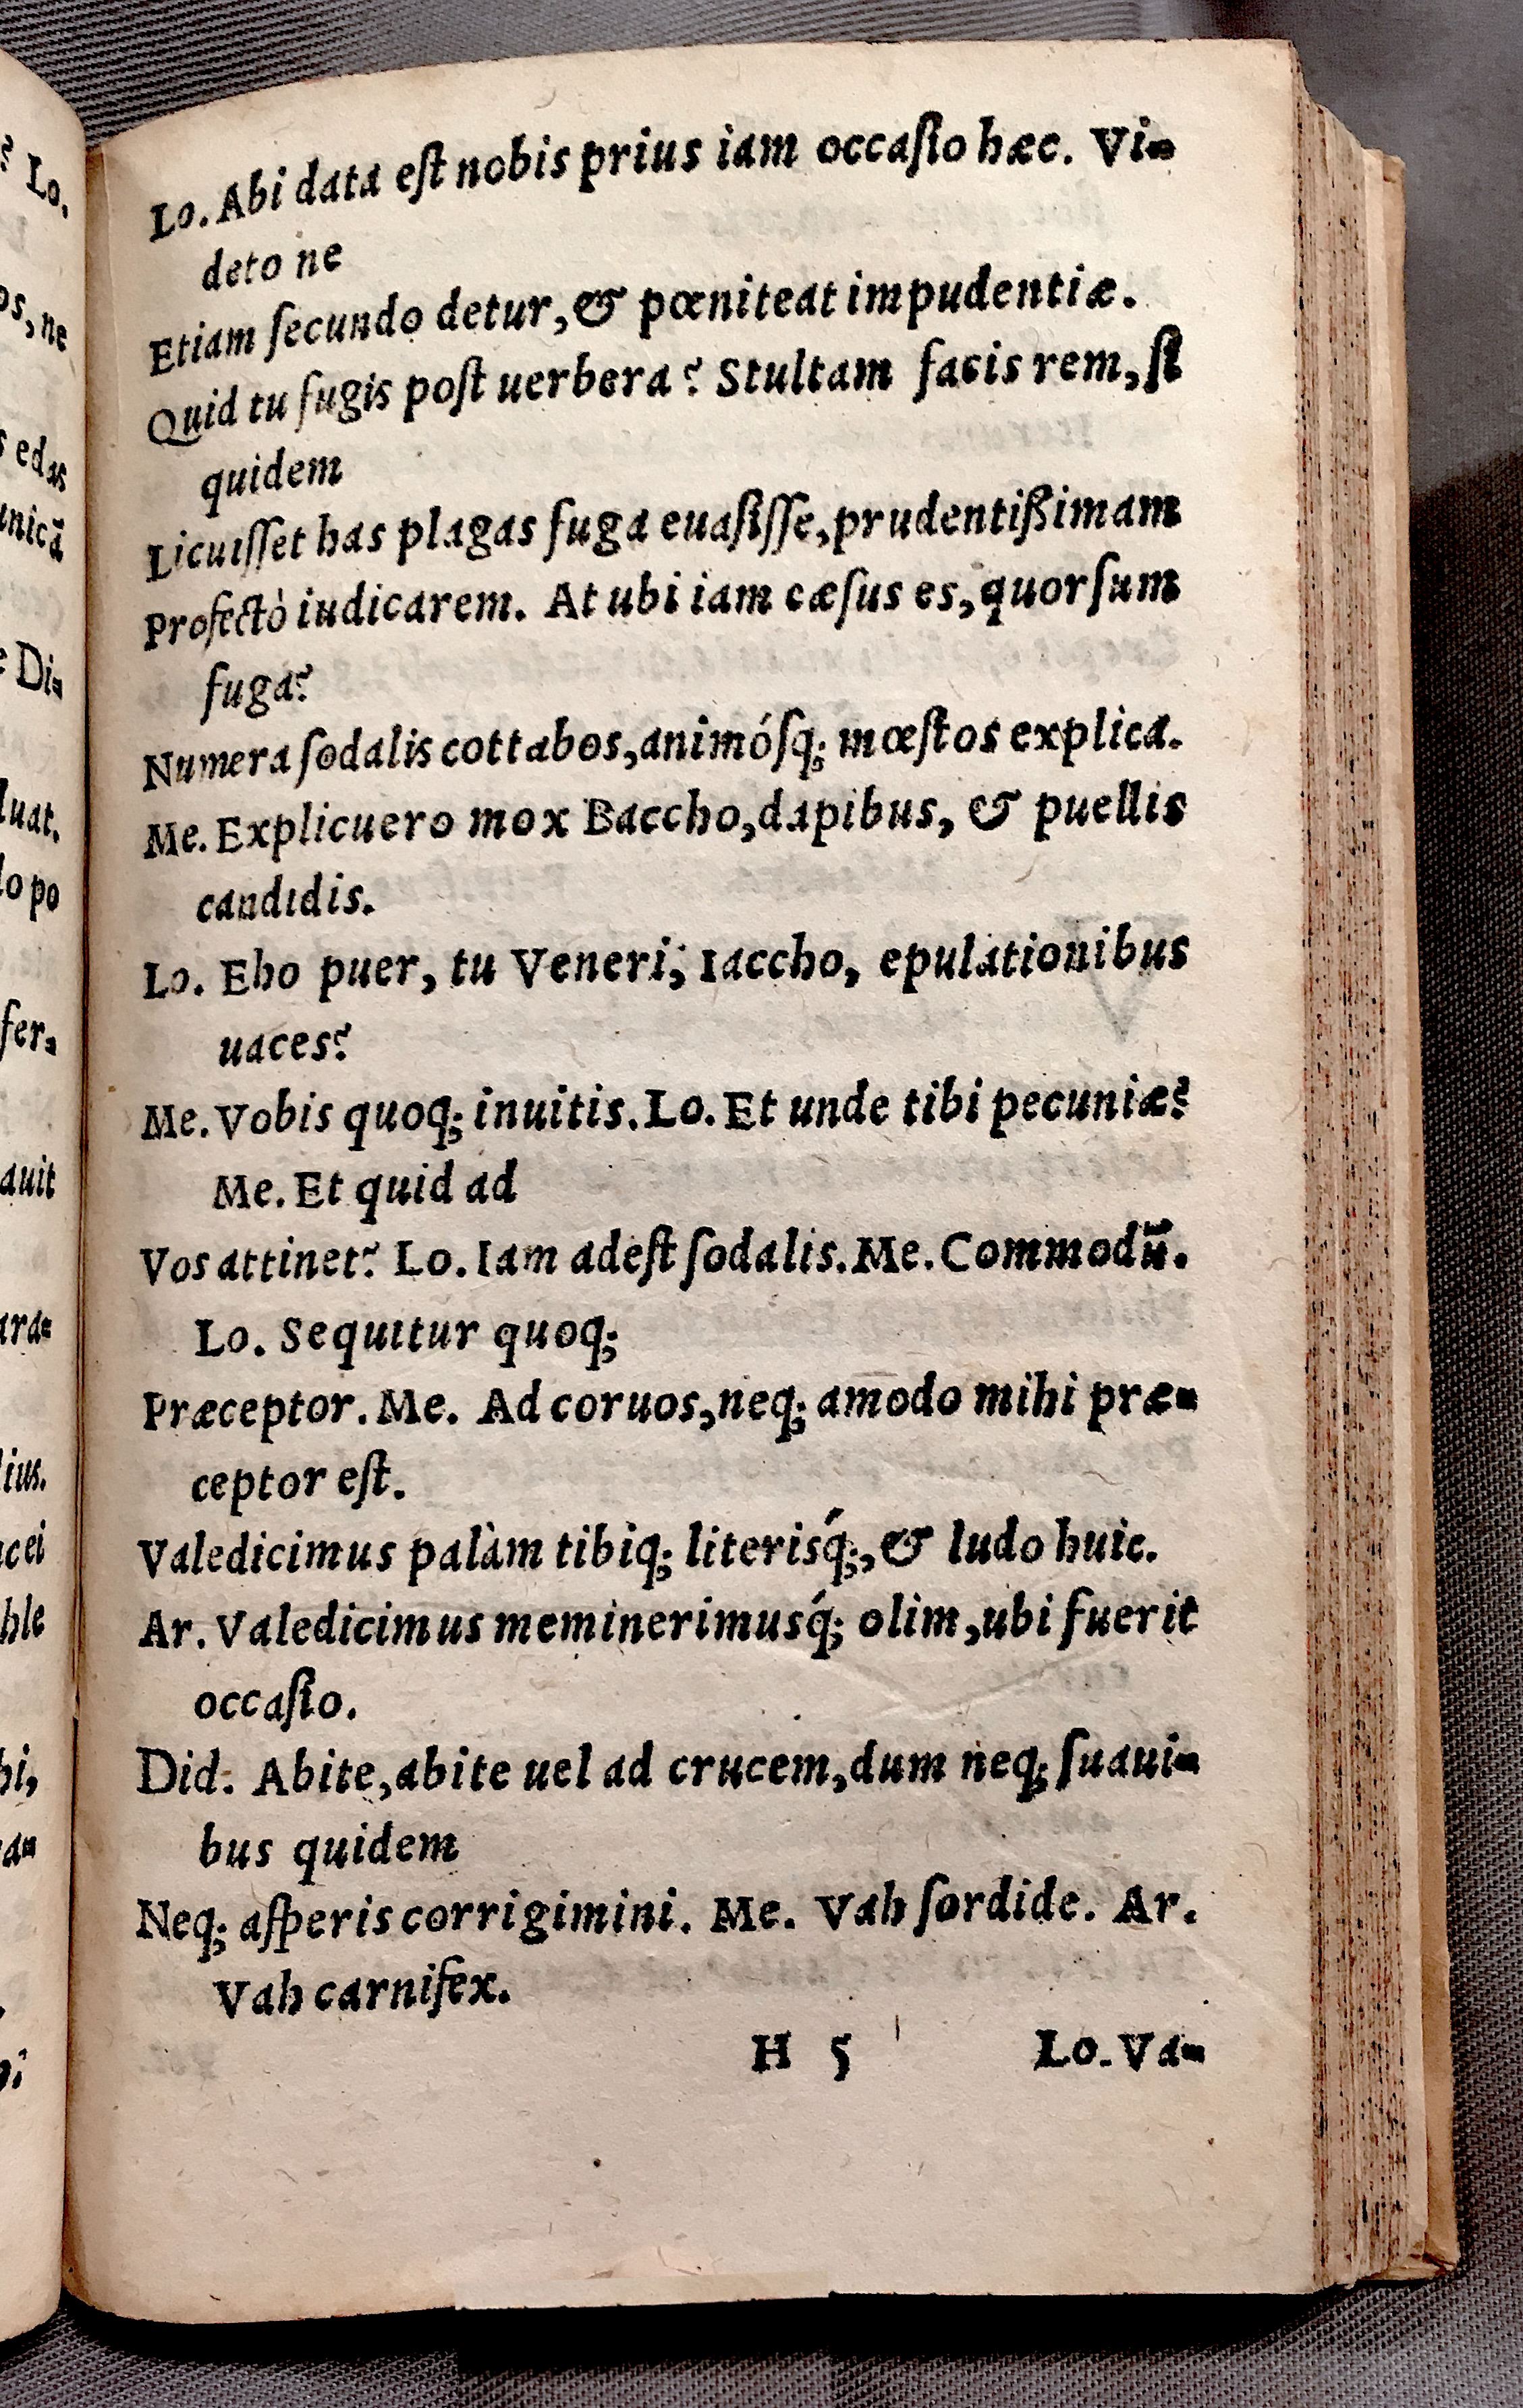 Lo. Abi data eſt nobis prius iam occaſio hæc. Vi-
deto ne
Etiam ſecundo detur, & pœniteat impudentiæ.
Quid tu fugis poſt uerbera? Stultam facis rem, ſi
quidem
Licuiſſet has plagas fuga euaſiſſe, prudentiſſimam
Profectò iudicarem. At ubi iam cæſus es, quorſum
fuga?
Numera ſodalis cottabos, animóſq; mœſtos explica.
Me. Explicuero mox Baccho, dapibus, & puellis
candidis.
Lo. Eho puer, tu Veneri, Iaccho, epulationibus
uaces?
Me. Vobis quoq; inuitis. Lo. Et unde tibi pecuniæ?
Me. Et quid ad
Vos attinet? Lo. Iam adeſt ſodalis. Me. Commodū.
Lo. Sequitur quoq;
Præceptor. Me. Ad coruos, neq; amodo mihi præ-
ceptor eſt.
Valedicimus palàm tibiq; literisq́;, & ludo huic.
Ar. Valedicimus meminerimusq́; olim, ubi fuerit
occaſio.
Did. Abite, abite uel ad crucem, dum neq; ſuaui-
bus quidem
Neq; aſperis corrigimini. Me. Vah ſordide. Ar.
Vah carnifex.
H 5 Lo. Va-
Lo.
os, ne
edas
unicā
Di-
luat.
lo po
fer-
auit
ara-
lius.
hle